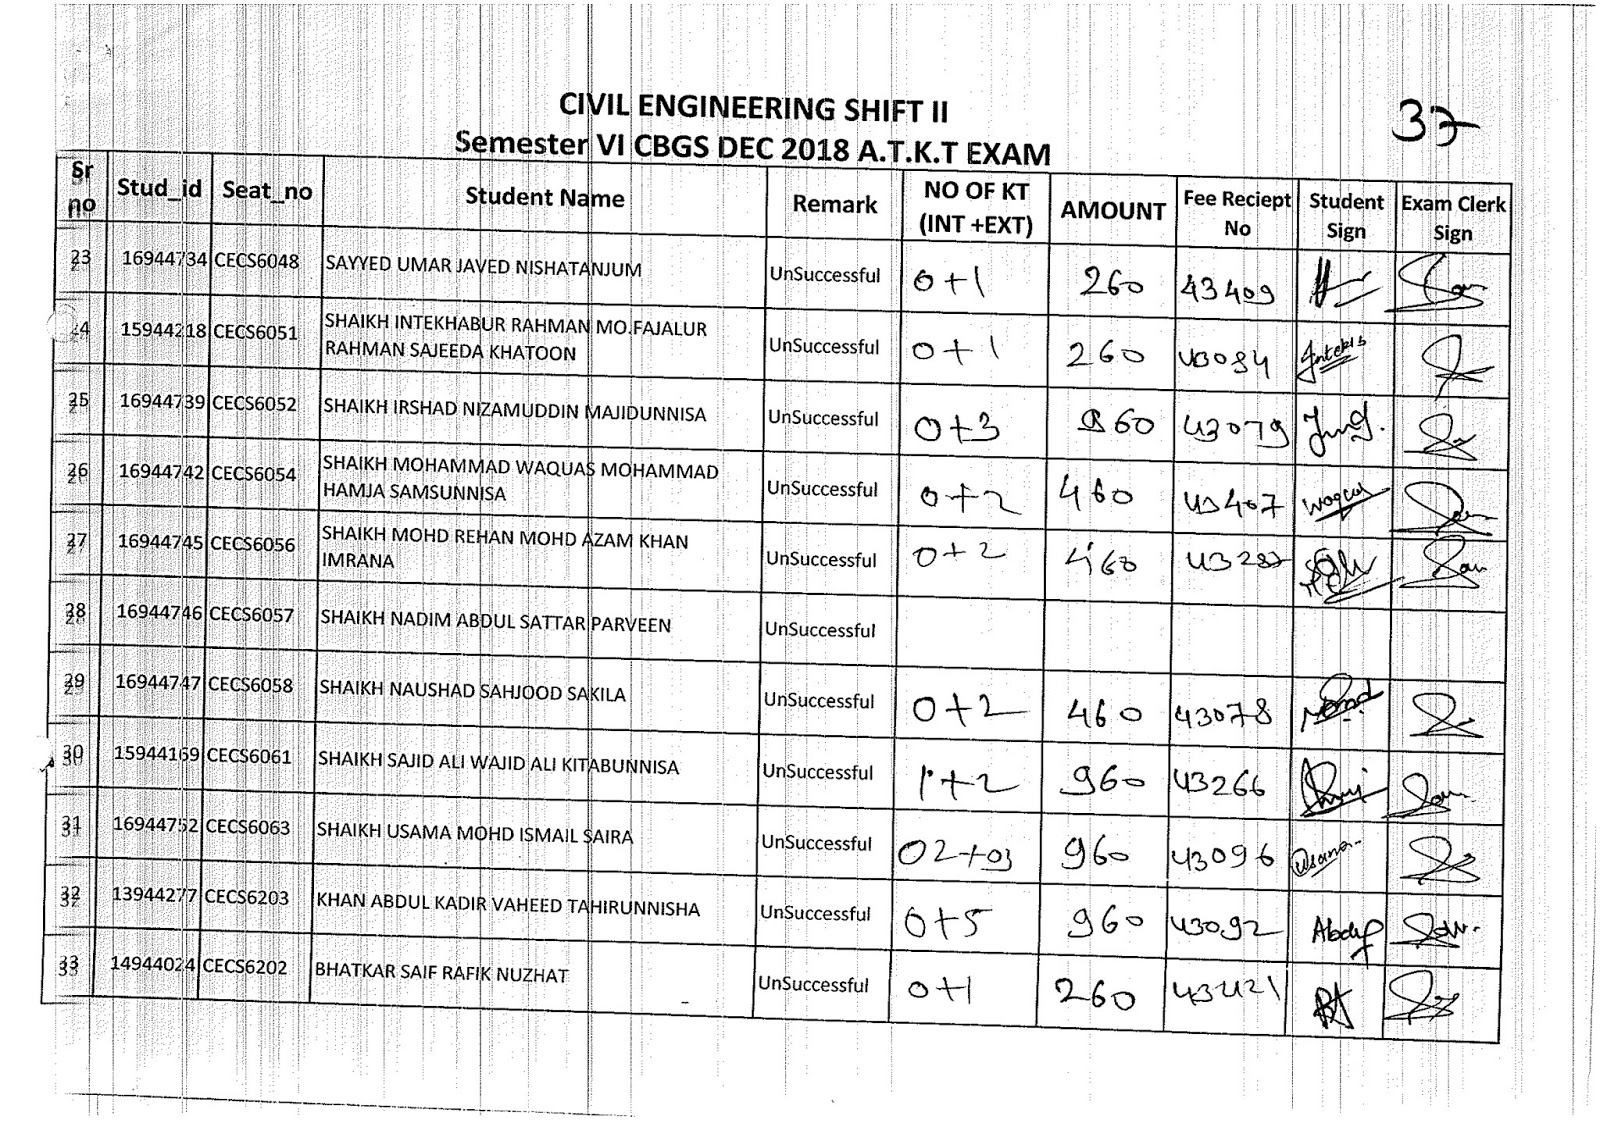 CIVIL ENGINEERING SHIFT II
37
Semester VI CBGS DEC 2018 A.T.K.T EXAM
Sr no Stud_id Seat_no Student Name Remark NO OF KT (INT +EXT) AMOUNT Fee Reciept No Student Sign Exam Clerk Sign
23 16944734 CECS6048 SAYYED UMAR JAVED NISHATANJUM UnSuccessful 0+1 260 43409
24 15944218 CECS6051 SHAIKH INTEKHABUR RAHMAN MO.FAJALUR
RAHMAN SAJEEDA KHATOON UnSuccessful 0+1 260 43084
25 16944739 CECS6052 SHAIKH IRSHAD NIZAMUDDIN MAJIDUNNISA UnSuccessful 0+3 860 43079
26 16944742 CECS6054 SHAIKH MOHAMMAD WAQUAS MOHAMMAD
HAMJA SAMSUNNISA UnSuccessful 0+2 460 43407
27 16944745 CECS6056 SHAIKH MOHD REHAN MOHD AZAM KHAN
IMRANA UnSuccessful 0+2 460 43287
28 16944746 CECS6057 SHAIKH NADIM ABDUL SATTAR PARVEEN UnSuccessful
29 16944747 CECS6058 SHAIKH NAUSHAD SAHJOOD SAKILA UnSuccessful 0+2 460 43078
30 15944169 CECS6061 SHAIKH SAJID ALI WAJID ALI KITABUNNISA UnSuccessful 1+2 960 43266
31 16944752 CECS6063 SHAIKH USAMA MOHD ISMAIL SAIRA UnSuccessful 02+03 960 43096 Usama
32 13944277 CECS6203 KHAN ABDUL KADIR VAHEED TAHIRUNNISHA UnSuccessful 0+5 960 43092
33 14944024 CECS6202 BHATKAR SAIF RAFIK NUZHAT UnSuccessful 0+1 260 43421